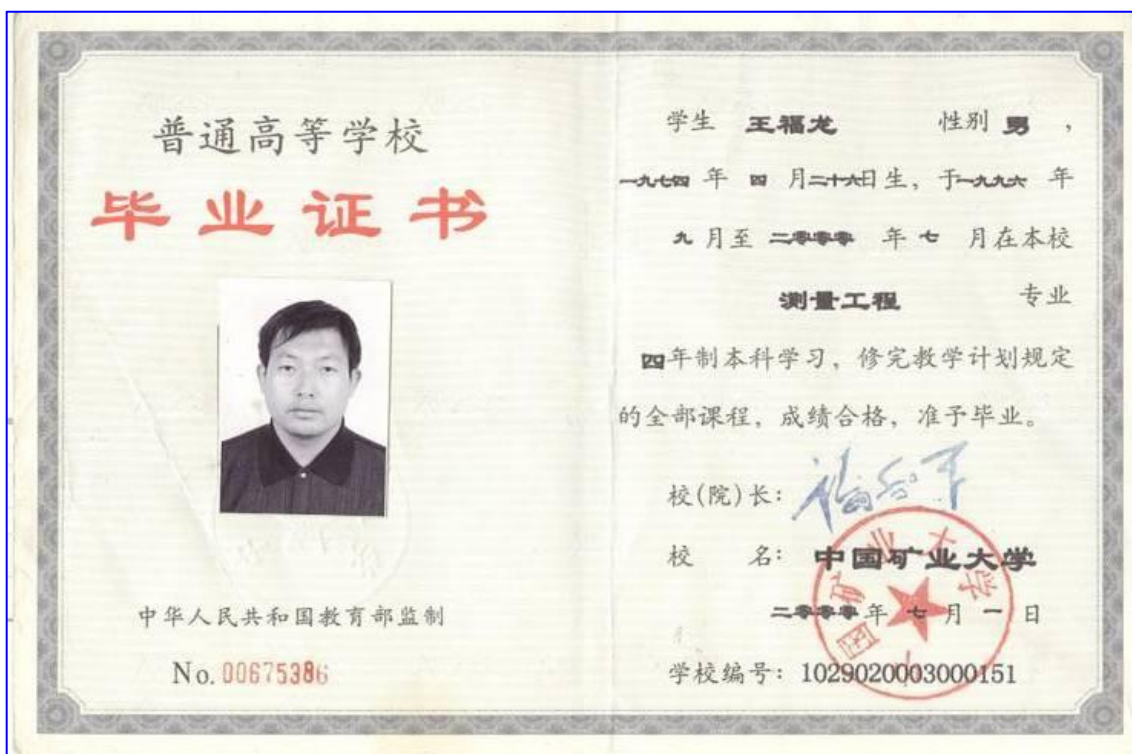 普通高等学校
毕业证书
中华人民共和国教育部监制
No. 00675386
学生 王福龙 性别 男 ，
一九七四 年 四 月二十六日生，于一九九六 年
九 月至 二零零零 年 七 月在本校
测量工程 专业
四年制本科学习，修完教学计划规定
的全部课程，成绩合格，准予毕业。
校(院)长：
校 名：中国矿业大学
二零零零年 七 月 一 日
学校编号：1029020003000151
中国矿业大学